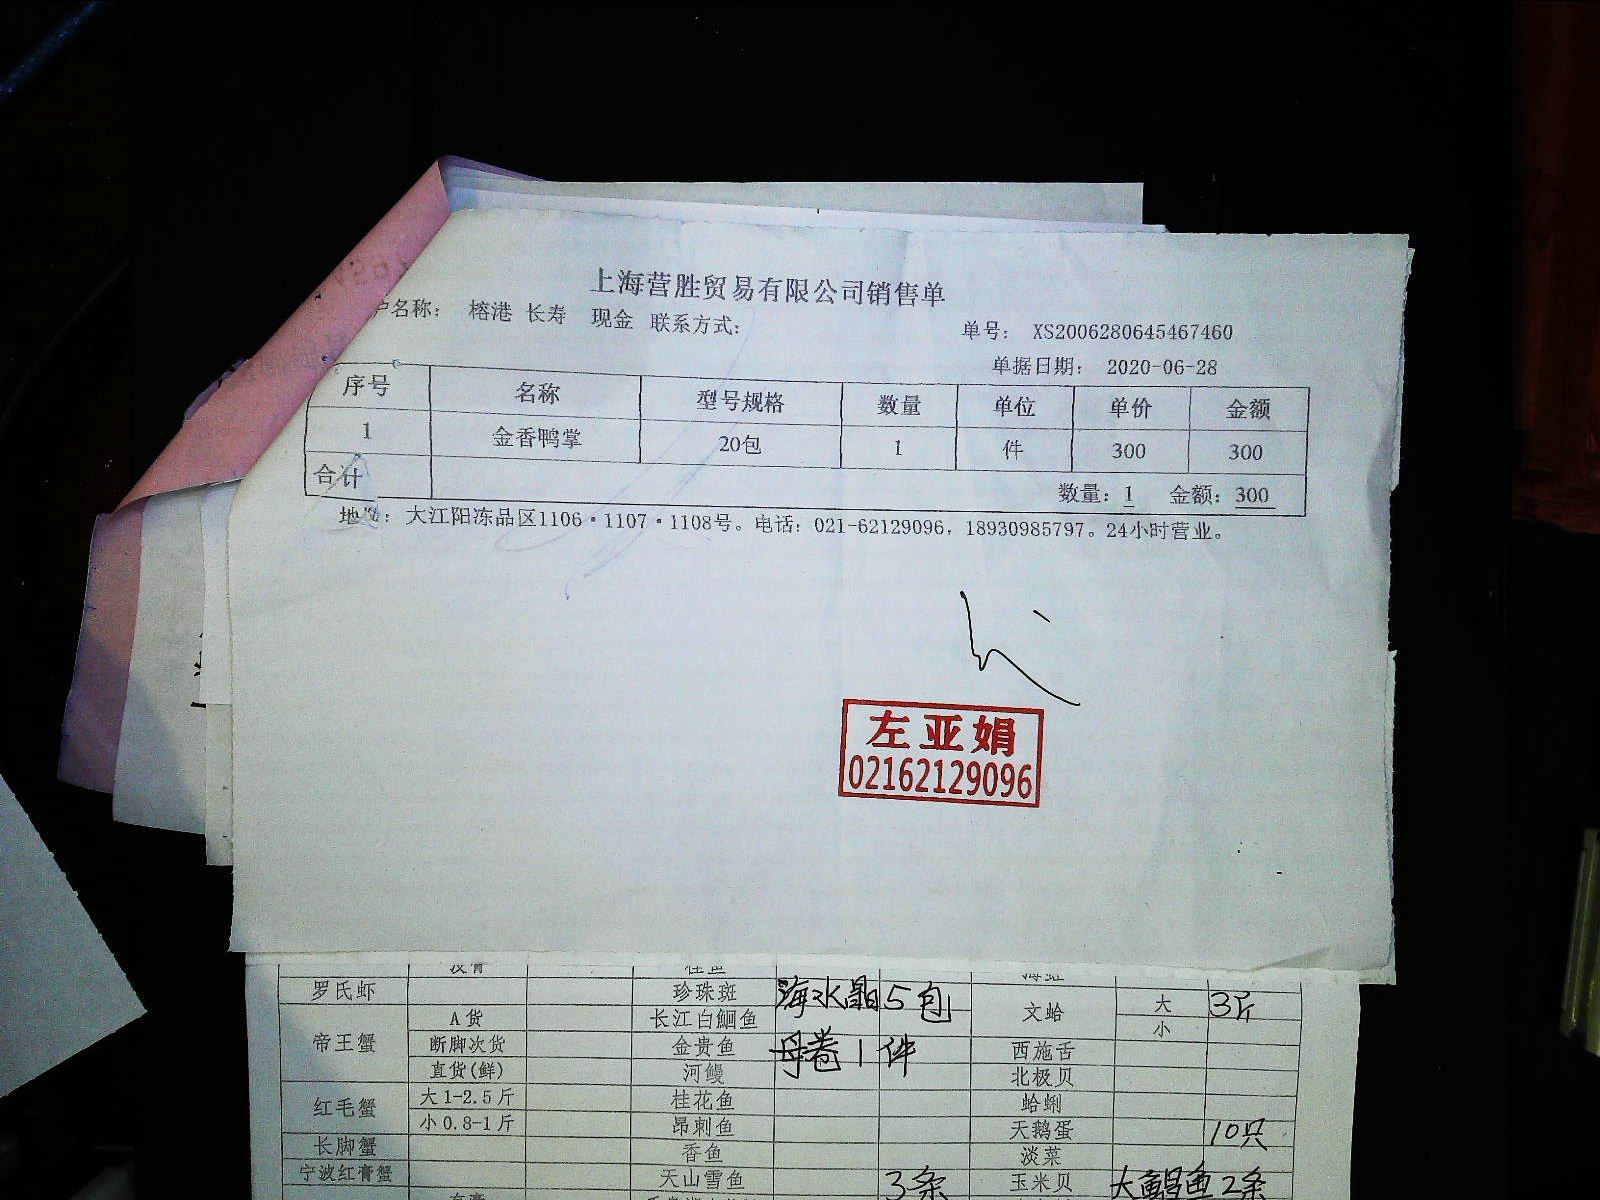 上海营胜贸易有限公司销售单
户名称： 榕港 长寿 现金 联系方式：
单号： XS2006280645467460
单据日期： 2020-06-28
序号 名称 型号规格 数量 单位 单价 金额
1 金香鸭掌 20包 1 件 300 300
合计 数量：1 金额：300
地址：大江阳冻品区1106·1107·1108号。电话：021-62129096，18930985797。24小时营业。
左亚娟
02162129096
罗氏虾 珍珠斑 海水晶5包 文蛤 大 3斤
帝王蟹 A货 长江白鮰鱼 小
断脚次货 金贵鱼 丹卷1件 西施舌
直货(鲜) 河鳗 北极贝
红毛蟹 大1-2.5斤 桂花鱼 蛤蜊
小0.8-1斤 昂刺鱼 天鹅蛋 10只
长脚蟹 香鱼 淡菜
宁波红膏蟹 天山雪鱼 3条 玉米贝 大鲳鱼2条